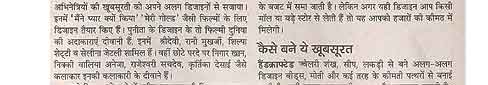 अभिनेत्रियों की खूबसूरती को अपने अलग डिजाइनों से सजाया।
इनमें 'मैंने प्यार क्यों किया' 'मेरी गोल्ड' जैसी फिल्मों के लिए
डिजाइन तैयार किए हैं। पुनीता के डिजाइन के तो फिल्मी दुनिया
की अदाकाराएं दीवानी हैं, इनमें श्रीदेवी, रानी मुखर्जी, शिल्पा
शेट्टी व सेलीना जेटली शामिल हैं। वहीं छोटे परदे पर निगार खान,
निक्की वालिया अनेजा, राजेश्वरी सचदेव, कृतिका देसाई जैसे
कलाकार इनकी कलाकारी के दीवाने हैं।
के बजट में समा जाती है। लेकिन अगर यही डिजाइन आप किसी
मॉल या बड़े स्टोर से लेती हैं तो यह आपको हजारों की कीमत में
मिलेगी।
कैसे बने ये खूबसूरत
हैंडक्राफ्टेड ज्वेलरी शंख, सीप, लकड़ी से बने अलग-अलग
डिजाइन बीड्स, मोती और कई तरह के कीमती पत्थरों से बनाई